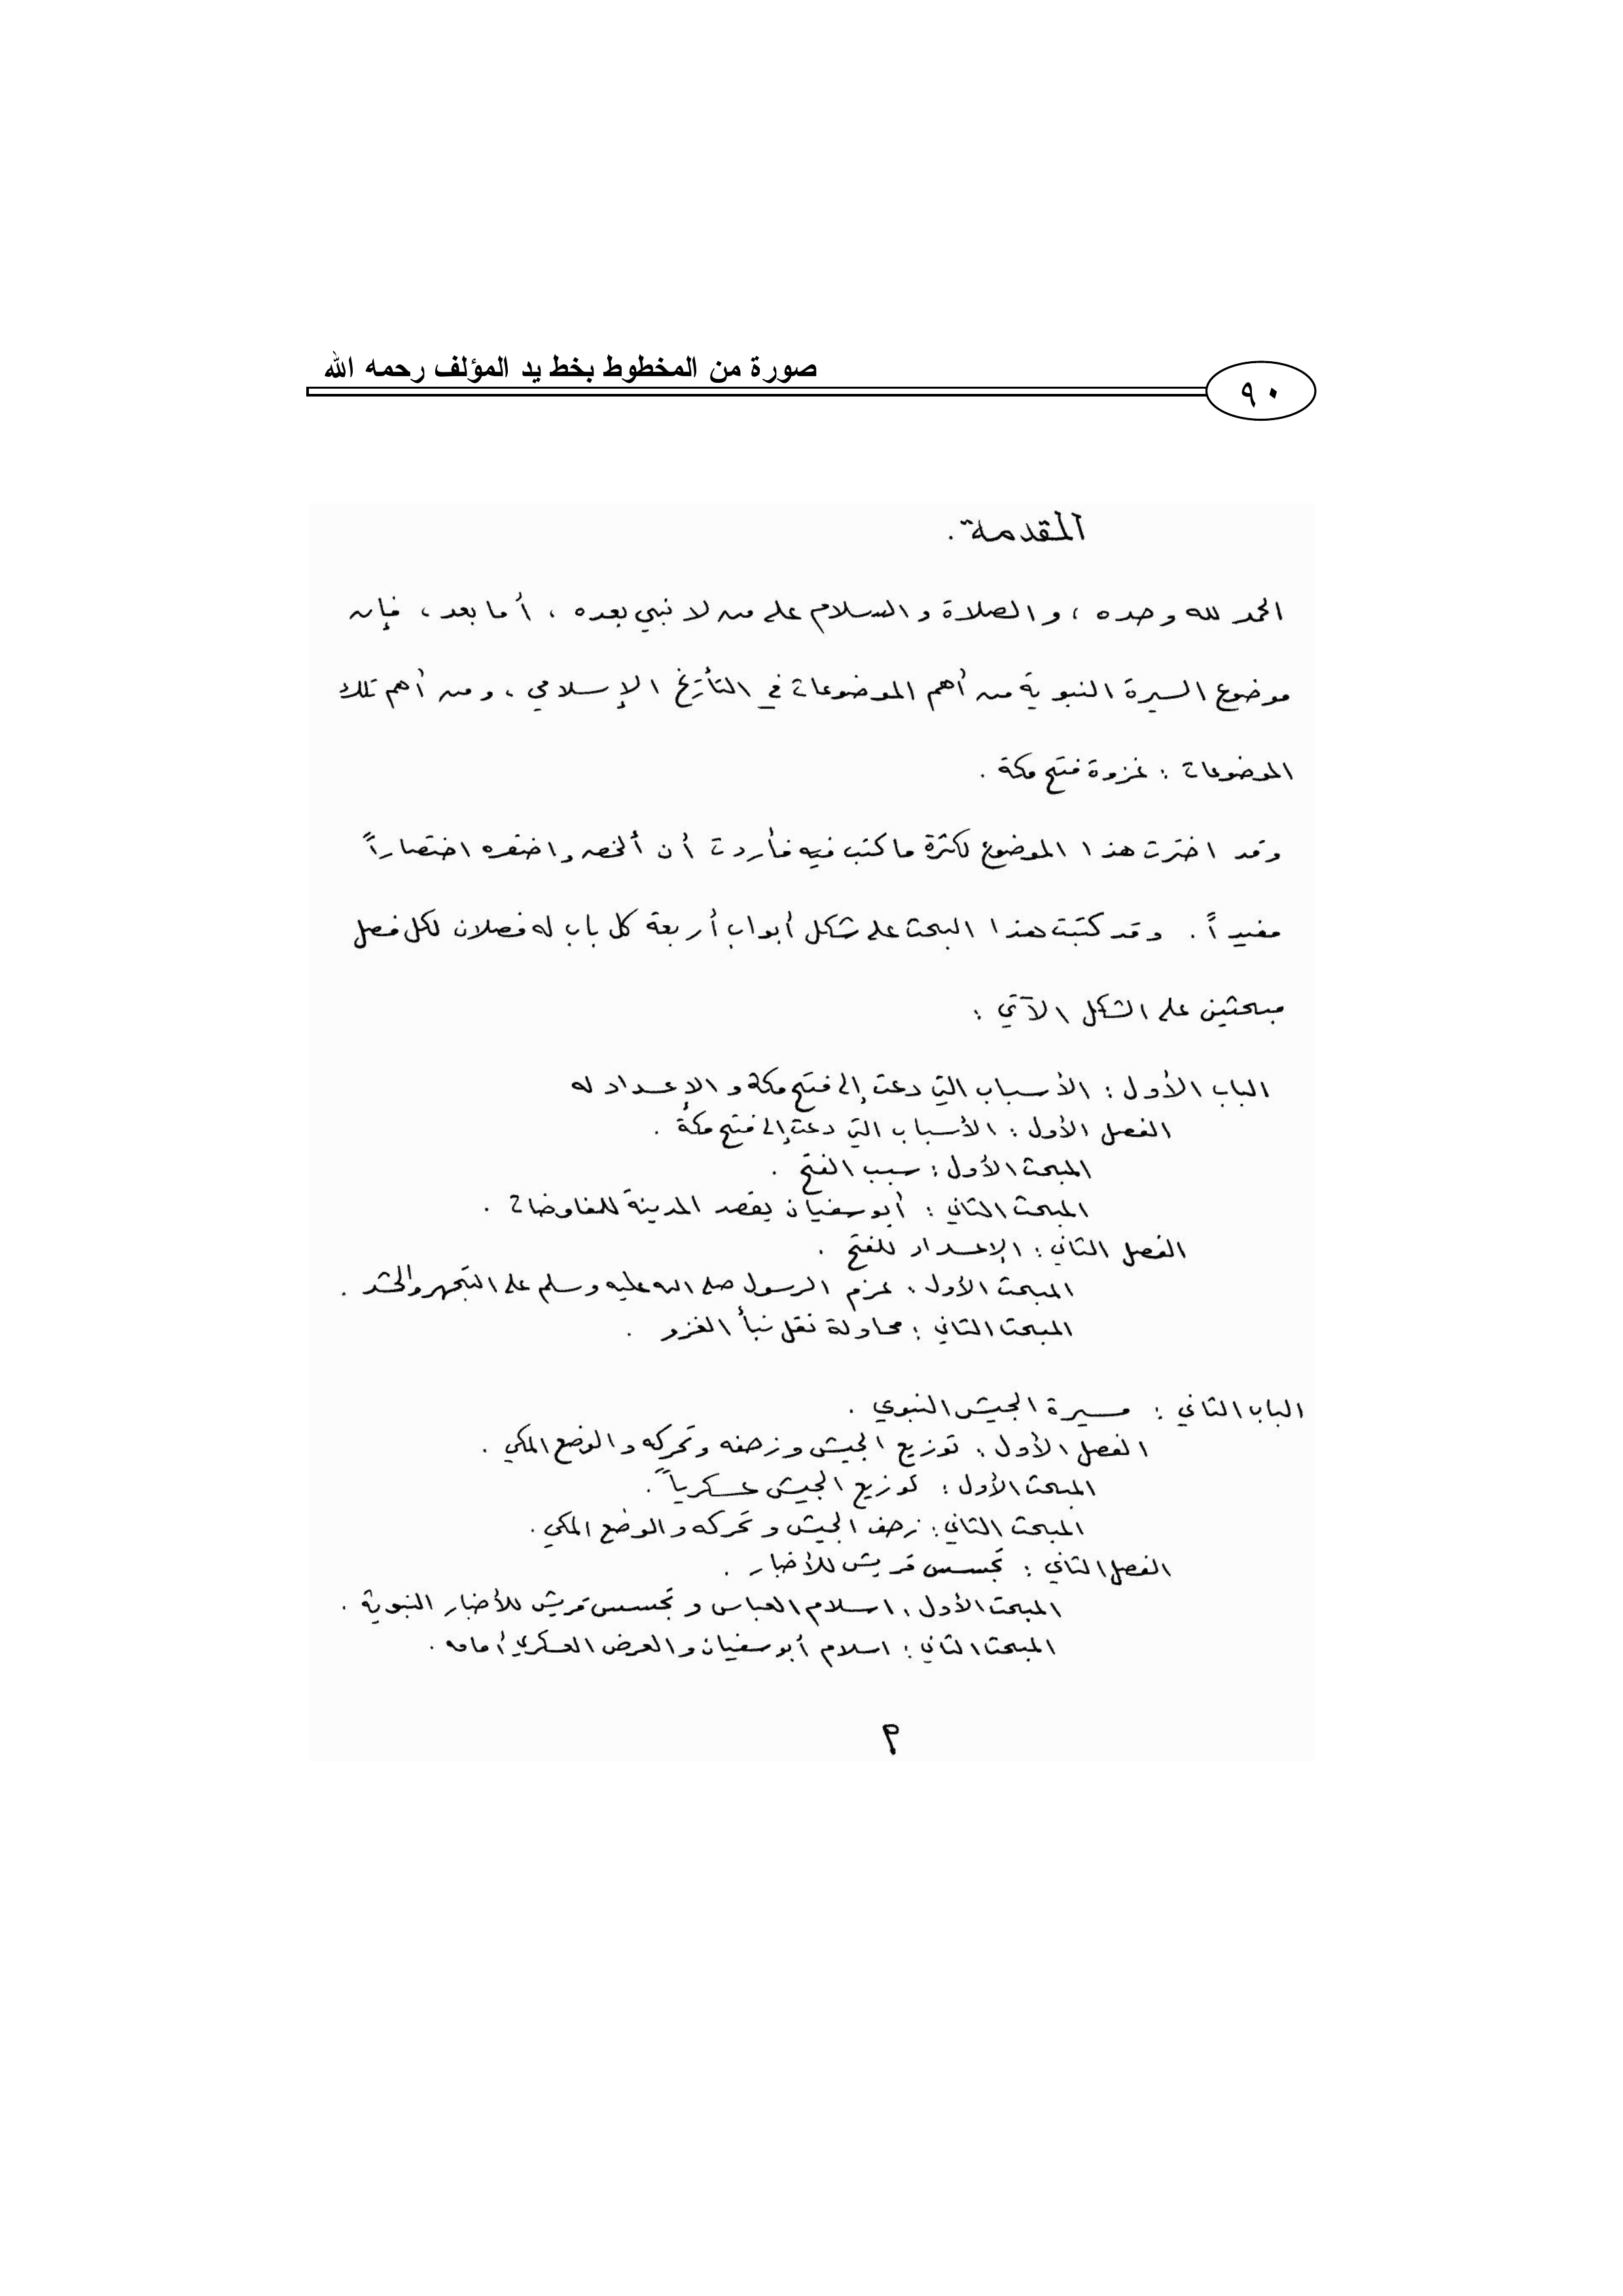 صورة من المخطوط بخط يد المؤلف رحمه الله
٩٠
المقدمة .
الحمد لله وحده ، والصلاة والسلام على من لا نبي بعده ، أما بعد ، فإن
موضوع السيرة النبوية من أهم الموضوعات في التأريخ الإسلامي ، ومن أهم تلك
الموضوعات : غزوة فتح مكة .
وقد اخترت هذا الموضوع لكثرة ما كتب فيه فأردت أن ألخصه واختصره اختصاراً
مفيداً . وقد كتبت هذا البحث على شكل أبواب أربعة كل باب له فصلان لكل فصل
مبحثين على الشكل الآتي :
الباب الأول : الأسباب التي دعت إلى فتح مكة والإعداد له
الفصل الأول : الأسباب التي دعت إلى فتح مكة .
المبحث الأول : سبب الفتح .
المبحث الثاني : أبو سفيان يقصد المدينة للمفاوضات .
الفصل الثاني : الإعداد للفتح .
المبحث الأول : عزم الرسول صلى الله عليه وسلم على التجهز والحشد .
المبحث الثاني : محاولة نقل نبأ الغزو .
الباب الثاني : مسيرة الجيش النبوي .
الفصل الأول : توزيع الجيش وزحفه وتحركه والوضع المكي .
المبحث الأول : توزيع الجيش عسكرياً .
المبحث الثاني : زحف الجيش وتحركه والوضع المكي .
الفصل الثاني : تجسس قريش للأخبار .
المبحث الأول : اسلام العباس وتجسس قريش للأخبار النبوية .
المبحث الثاني : اسلام أبو سفيان والعرض العسكري أمامه .
٢